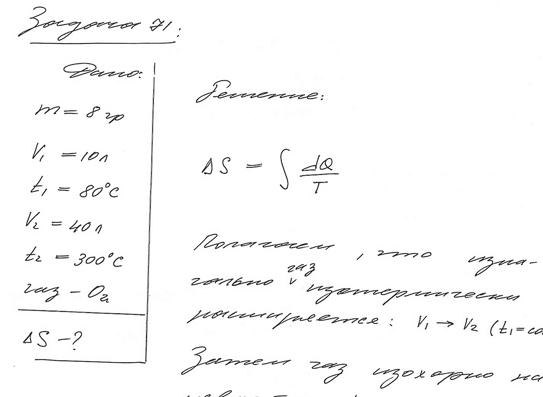 Задача 71:
Дано:
m = 8 гр
V₁ = 10 л
t₁ = 80°C
V₂ = 40 л
t₂ = 300°C
газ – O₂
ΔS – ?
Решение:
ΔS = ∫ dQ/T
Полагаем, что изна-
чально газ изотермически
расширяется: V₁ → V₂ (t₁=co
Затем газ изохорно на